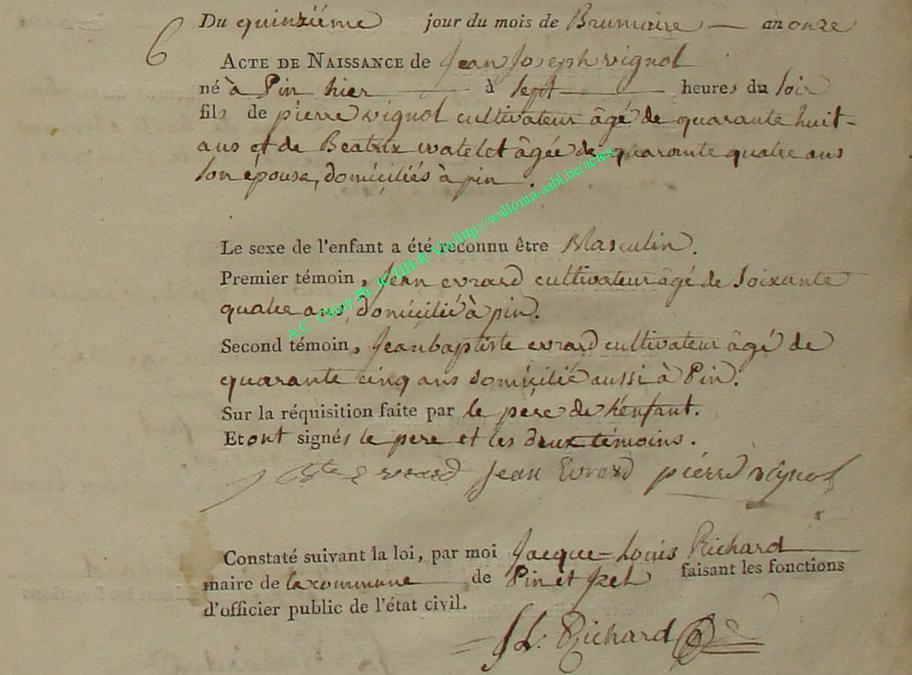 6
Du quinzième jour du mois de Brumaire — an onze
ACTE DE NAISSANCE de Jean Joseph vignol
né à Pin hier — à sept — heures du soir
fils de pierre vignol cultivateur âgé de quarante huit-
ans et de Beatrix watelet âgée de quarante quatre ans
son épouse, domiciliés à pin.
Le sexe de l'enfant a été reconnu être Masculin.
Premier témoin, Jean evrard cultivateur âgé de soixante
quatre ans, domicilié à pin.
Second témoin, Jeanbaptiste evrard cultivateur âgé de
quarante cinq ans domicilié aussi à Pin.
Sur la réquisition faite par le père de l'enfant.
Et ont signés le pere et les deux témoins.
J Bte evrard Jean Evrard pierre vignol
Constaté suivant la loi, par moi Jacque-Louis Richard
maire de la commune de Pin et Izel faisant les fonctions
d'officier public de l'état civil.
JL. Richard
http://wallonia-asbl.be/actes